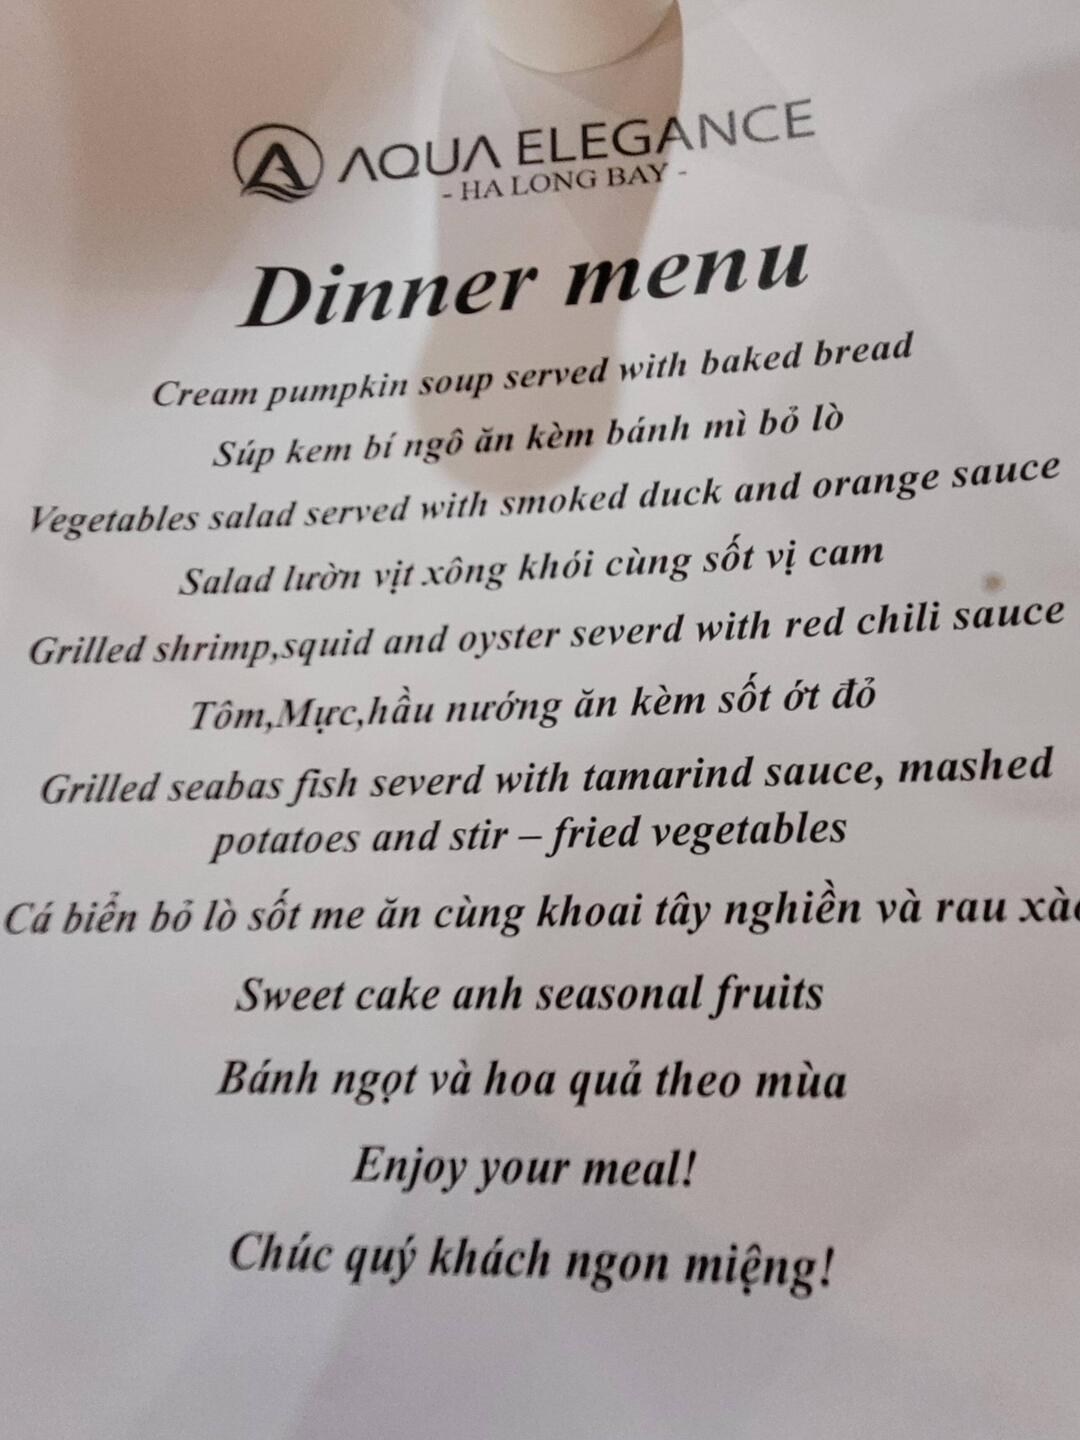 AQUA ELEGANCE
- HA LONG BAY -
Dinner menu
Cream pumpkin soup served with baked bread
Súp kem bí ngô ăn kèm bánh mì bỏ lò
Vegetables salad served with smoked duck and orange sauce
Salad lườn vịt xông khói cùng sốt vị cam
Grilled shrimp,squid and oyster severd with red chili sauce
Tôm,Mực,hầu nướng ăn kèm sốt ớt đỏ
Grilled seabas fish severd with tamarind sauce, mashed
potatoes and stir – fried vegetables
Cá biển bỏ lò sốt me ăn cùng khoai tây nghiền và rau xào
Sweet cake anh seasonal fruits
Bánh ngọt và hoa quả theo mùa
Enjoy your meal!
Chúc quý khách ngon miệng!